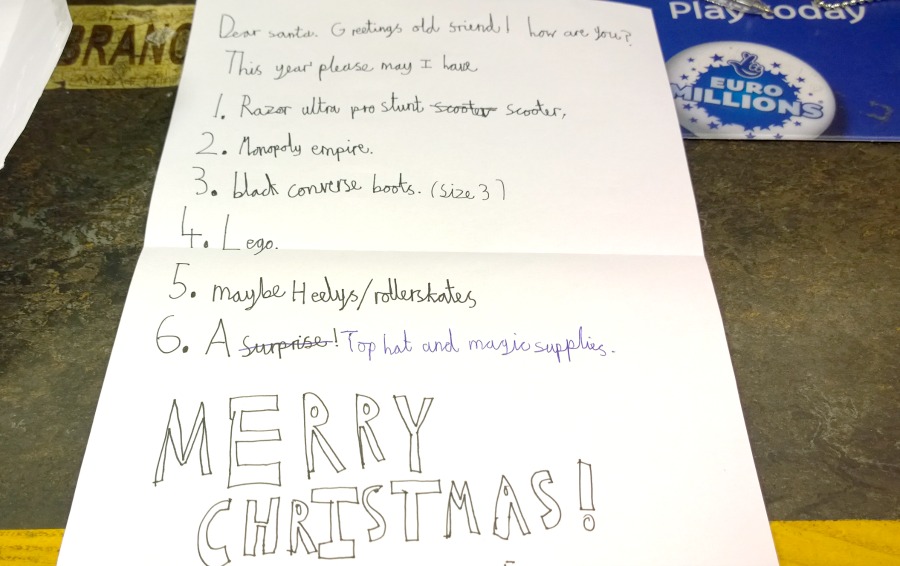 Play today
BRAND
EURO
MILLIONS
Dear santa. Greetings old sriend! how are you?
This year please may I have
1. Razor ultra pro stunt scooter scooter,
2. Monopoly empire.
3. black converse boots. (size 3)
4. Lego.
5. maybe Heelys/rollerskates
6. A surprise! Top hat and magic supplies.
MERRY
CHRISTMAS!